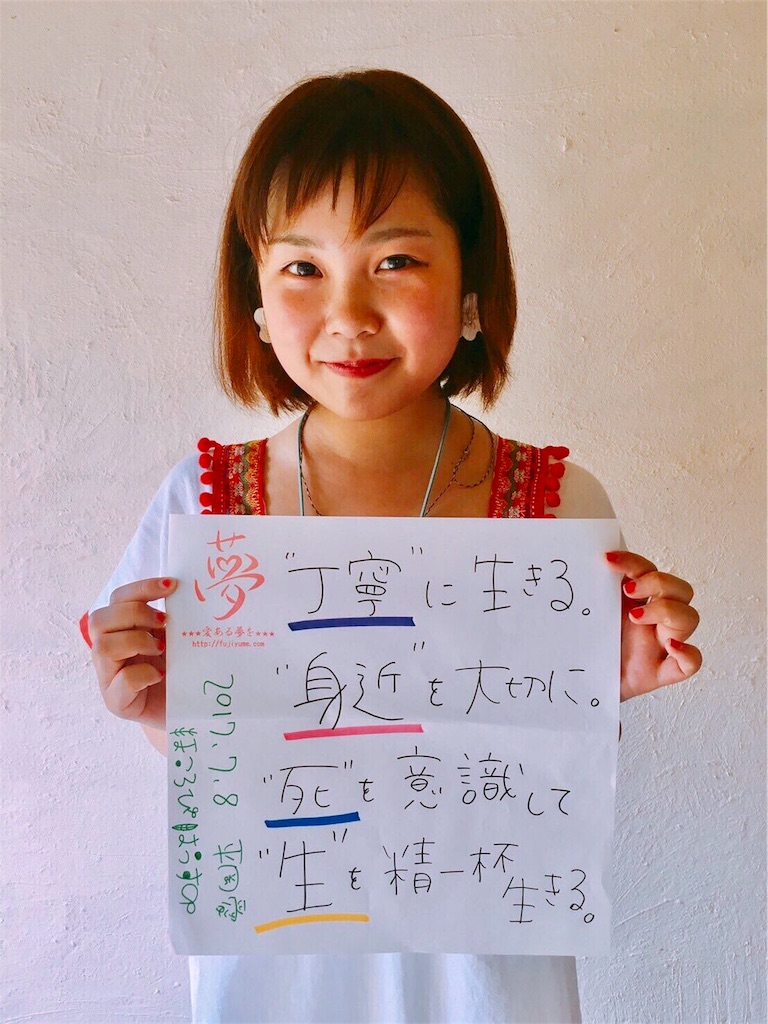 夢
★★★愛ある夢を★★★
http://fujiyume.com
"丁寧"に生きる。
"身近"を大切に。
"死"を意識して
"生"を精一杯
生きる。
2017.7.8